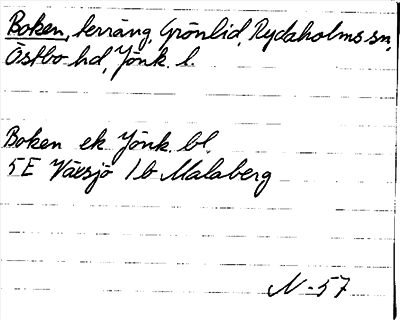 Boken, terräng, Grönlid, Rydaholms sn,
Östbo hd, Jönk. l.
Boken ek Jönk. bl.
5E Växsjö 1b Malaberg
N-57